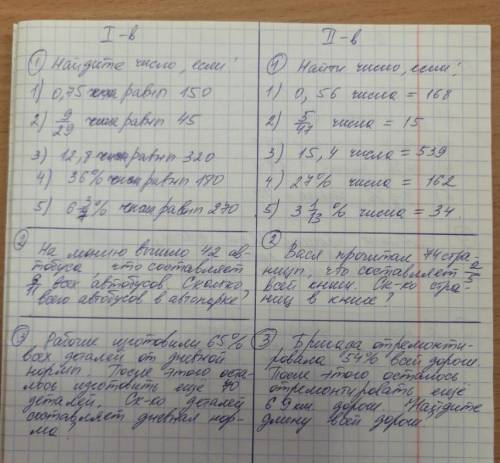 I-в
① Найдите число, если:
1) 0,75 равн 150
2) 9/29 равн 45
3) 12,8 равн 320
4) 36% равн 180
5) равн 270
② На линию вышло 42 ав-
тобуса что составляет
всех автобусов. Сколько
всего автобусов в автопарке?
③ Рабочие изготовили 65%
всех деталей от дневной
нормы. После этого оста-
лось изготовить еще 70
деталей. Ск-ко деталей
составляет дневная нор-
ма
II-в
① Найти число, если:
1) 0,56 числа = 168
2) 5/47 числа = 15
3) 15,4 числа = 539
4) 27% числа = 162
5) 3 1/13 % числа = 34
② Вася прочитал 74 стра-
ницы, что составляет 2/5
всей книги. Ск-ко стра-
ниц в книге?
③ Бригада отремонти-
ровала 54% всей дороги.
После этого осталось
отремонтировать еще
69 км. дороги. Найдите
длину всей дороги